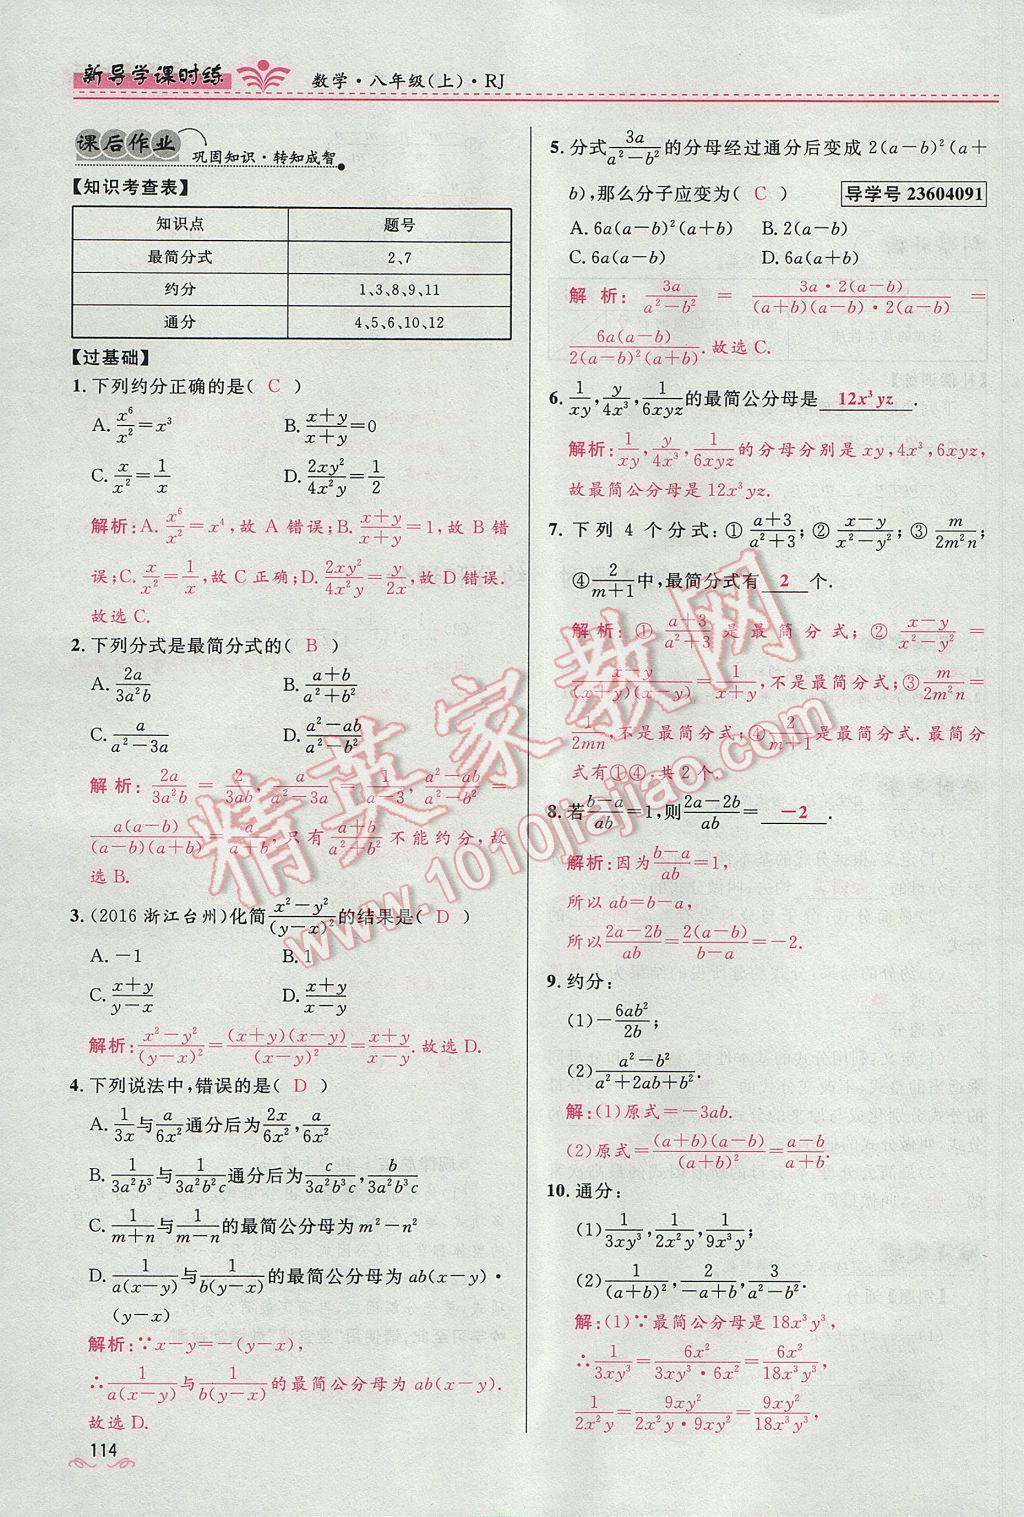 新导学课时练 数学·八年级(上)·RJ
课后作业 巩固知识·转知成智
【知识考查表】
知识点 题号
最简分式 2、7
约分 1、3、8、9、11
通分 4、5、6、10、12
【过基础】
1. 下列约分正确的是( C )
A. x⁶/x²=x³ B. (x+y)/(x+y)=0
C. x/x²=1/x D. 2xy²/4x²y=1/2
解析:A. x⁶/x²=x⁴,故 A 错误;B. (x+y)/(x+y)=1,故 B 错
误;C. x/x²=1/x,故 C 正确;D. 2xy²/4x²y=y/2x,故 D 错误.
故选 C.
2. 下列分式是最简分式的( B )
A. 2a/3a²b B. (a+b)/(a²+b²)
C. a/(a²-3a) D. (a²-ab)/(a²-b²)
解析: 2a/3a²b = 2/3ab, a/(a²-3a) = 1/(a-3), (a²-ab)/(a²-b²) =
a(a-b)/(a-b)(a+b) = a/(a+b),只有 (a+b)/(a²+b²) 不能约分,故
选 B.
3. (2016 浙江台州)化简 (x²-y²)/(y-x)² 的结果是( D )
A. -1 B. 1
C. (x+y)/(y-x) D. (x+y)/(x-y)
解析: (x²-y²)/(y-x)²=(x+y)(x-y)/(x-y)²=(x+y)/(x-y).故选 D.
4. 下列说法中,错误的是( D )
A. 1/3x 与 a/6x² 通分后为 2x/6x², a/6x²
B. 1/3a²b³ 与 1/3a²b²c 通分后为 c/3a²b³c, b/3a²b³c
C. 1/(m+n) 与 1/(m-n) 的最简公分母为 m²-n²
D. 1/a(x-y) 与 1/b(y-x) 的最简公分母为 ab(x-y)·
(y-x)
解析:∵x-y=-(y-x),
∴1/a(x-y) 与 1/b(y-x) 的最简公分母为 ab(x-y).
故选 D.
114
5. 分式 3a/(a²-b²) 的分母经过通分后变成 2(a-b)²(a+
b),那么分子应变为( C ) 导学号 23604091
A. 6a(a-b)²(a+b) B. 2(a-b)
C. 6a(a-b) D. 6a(a+b)
解析: 3a/(a²-b²) = 3a·2(a-b)/(a+b)(a-b)·2(a-b) =
6a(a-b)/2(a-b)²(a+b).故选 C.
6. 1/xy, y/4x³, 1/6xyz 的最简公分母是 12x³yz .
解析: 1/xy, y/4x³, 1/6xyz 的分母分别是 xy,4x³,6xyz,
故最简公分母是 12x³yz.
7. 下列 4 个分式:① (a+3)/(a²+3);② (x-y)/(x²-y²);③ m/2m²n;
④ 2/(m+1) 中,最简分式有 2 个.
解析:① (a+3)/(a²+3) 是最简分式;② (x-y)/(x²-y²) =
(x-y)/(x+y)(x-y)=1/(x+y),不是最简分式;③ m/2m²n =
1/2mn,不是最简分式;④ 2/(m+1) 是最简分式.最简分
式有①④.共 2 个.
8. 若 (b-a)/ab=1,则 (2a-2b)/ab= -2 .
解析:因为 (b-a)/ab=1,
所以 ab=b-a,
所以 (2a-2b)/ab=2(a-b)/(b-a)=-2.
9. 约分:
(1)-6ab²/2b;
(2)(a²-b²)/(a²+2ab+b²).
解:(1)原式=-3ab.
(2)原式=(a+b)(a-b)/(a+b)²=(a-b)/(a+b).
10. 通分:
(1) 1/3xy³, 1/2x²y, 1/9x³y;
(2) 1/(a+b)², 2/(-a+b), 3/(a²-b²).
解:(1)∵最简公分母是 18x³y³,
∴1/3xy³=6x²/3xy³·6x²=6x²/18x³y³,
1/2x²y=9xy²/2x²y·9xy²=9xy²/18x³y³,
精英家教网
www.1010jiajiao.com